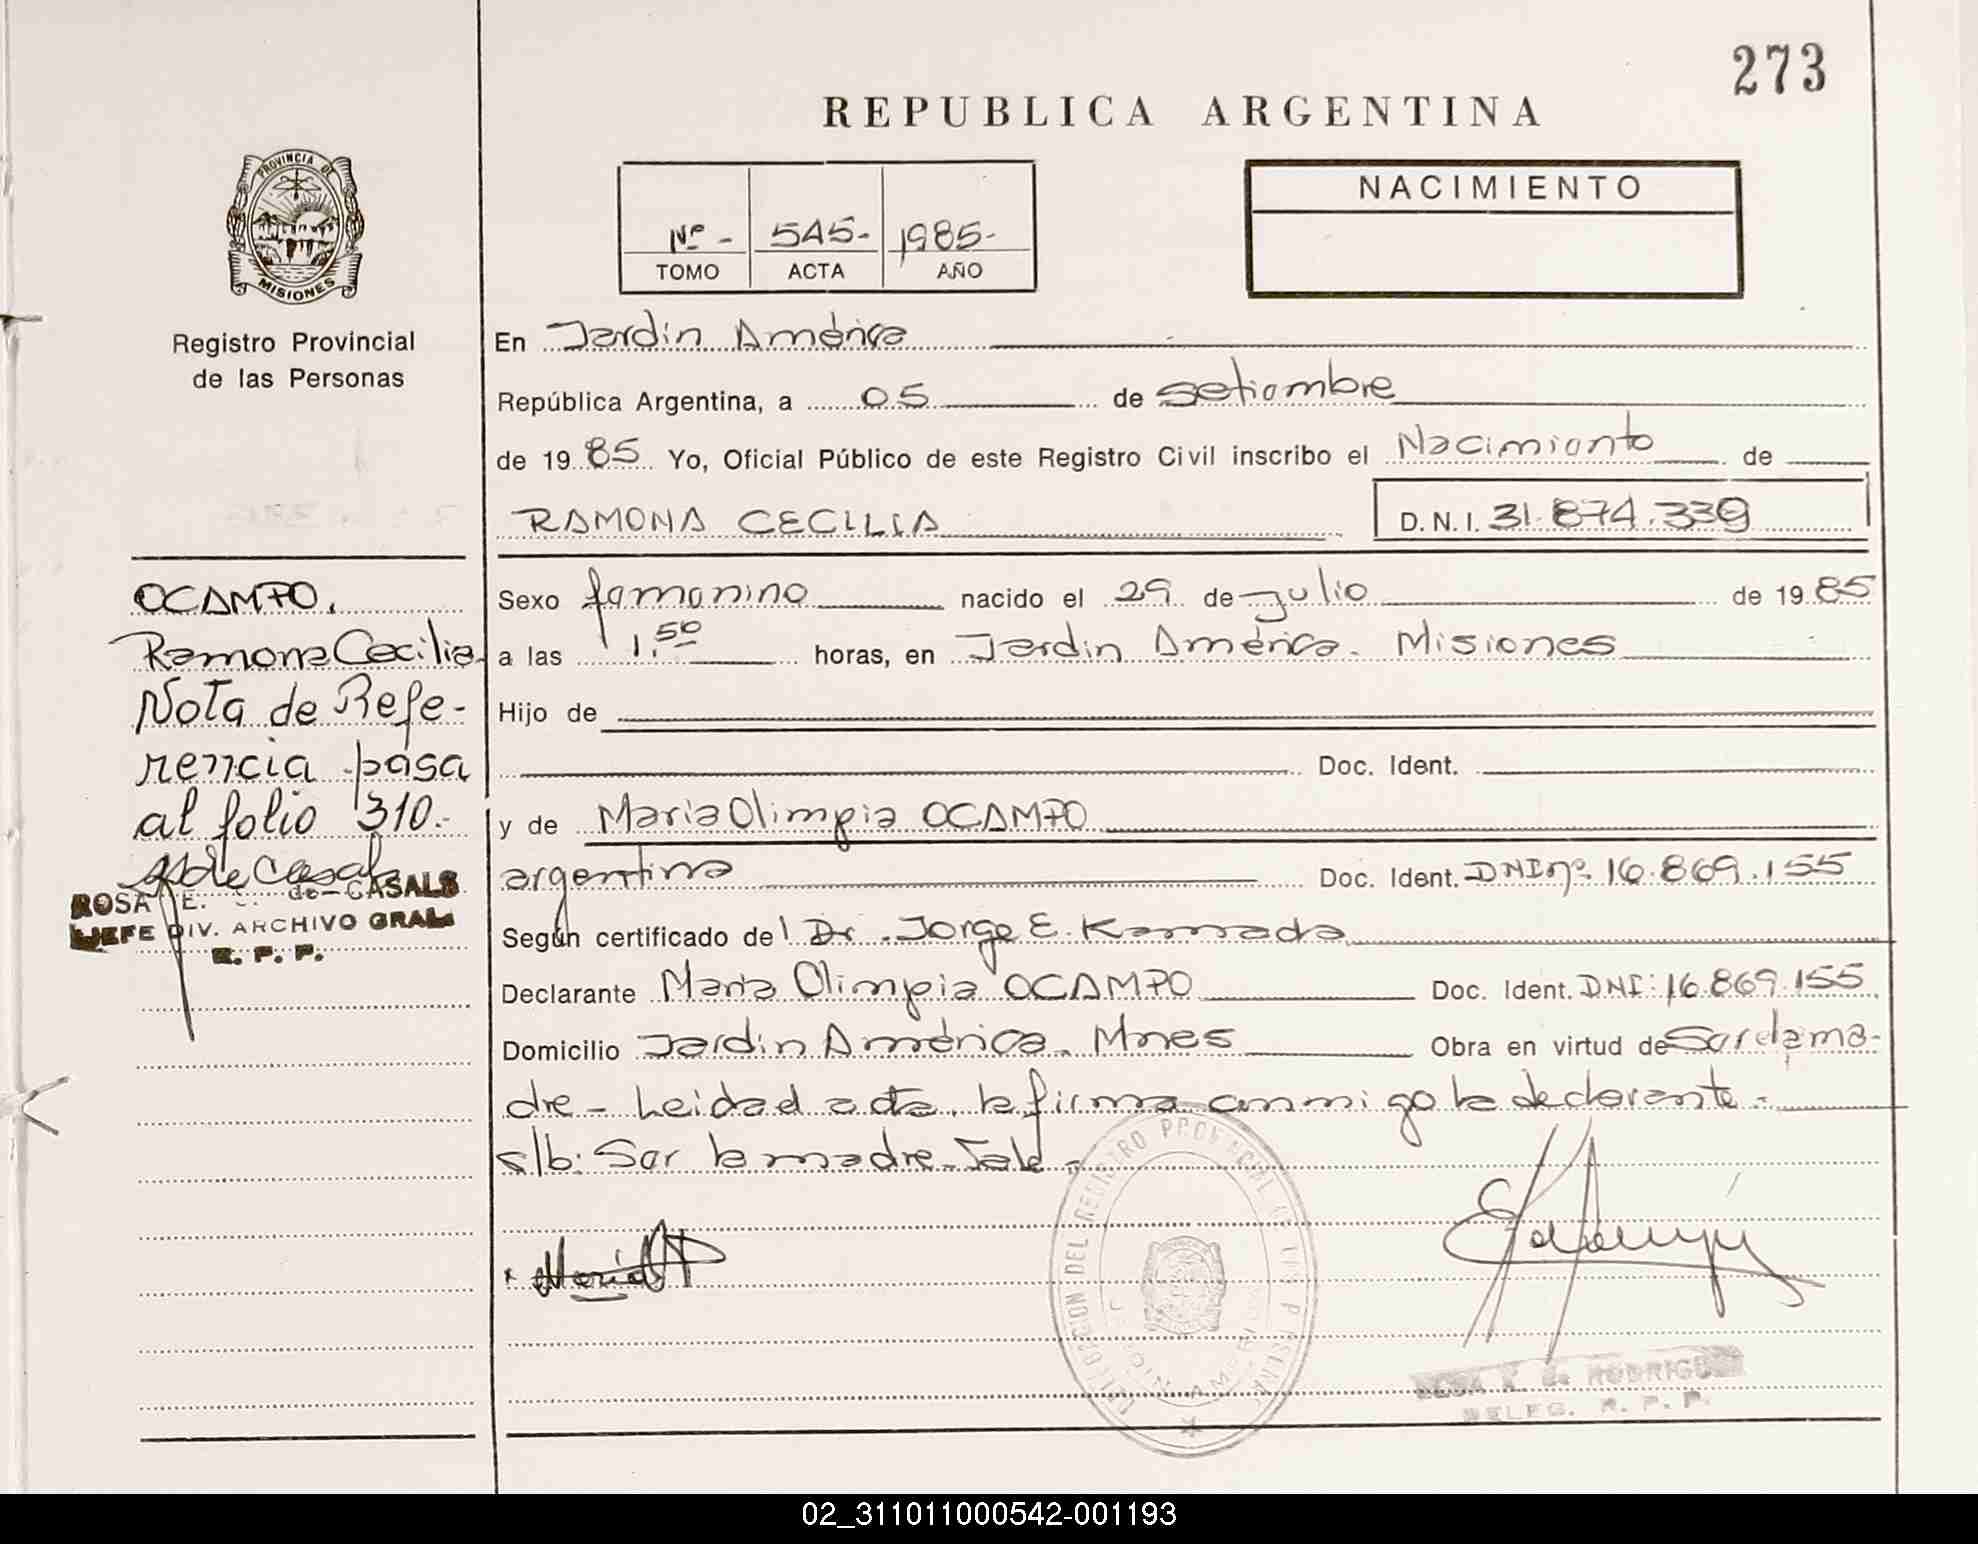 273
REPUBLICA ARGENTINA
PROVINCIA DE
MISIONES
Registro Provincial
de las Personas
Nº - 545- 1985-
TOMO ACTA AÑO
NACIMIENTO
En Jardín América
República Argentina, a 05 de Setiembre
de 1985 Yo, Oficial Público de este Registro Civil inscribo el Nacimiento de
RAMONA CECILIA D.N.I. 31.874.339
OCAMPO,
Ramona Cecilia.
Nota de Refe-
rencia pasa
al folio 310.-
ROSA E. de CASALS
JEFE DIV. ARCHIVO GRAL
R. P. P.
Sexo femenino nacido el 29 de Julio de 1985
a las 1,50 horas, en Jardín América. Misiones
Hijo de
Doc. Ident.
y de Maria Olimpia OCAMPO
argentina Doc. Ident. DNI nº. 16.869.155
Según certificado del Dr. Jorge E. Kamada
Declarante Maria Olimpia OCAMPO Doc. Ident. DNI: 16.869.155
Domicilio Jardín América. Mnes Obra en virtud de Ser la ma-
dre - Leida el acta, la firma conmigo la declarante.-
s/b: Ser la madre. Vale.-
DELEGACION DEL REGISTRO PROVINCIAL DE LAS PERSONAS
JARDIN AMERICA
ROSA de RODRIGUEZ
DELEG. R. P. P.
02_311011000542-001193